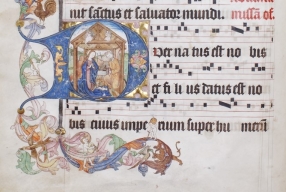 nit sanctus et salvator mundi. missam of.
Puer na tus est no bis
et fi li us datus est no
bis cuius impe rium super hu merum